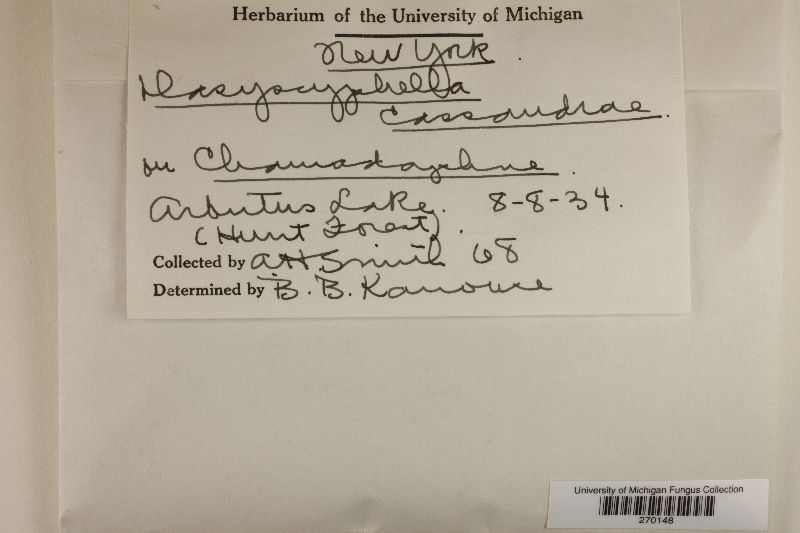 Herbarium of the University of Michigan
New York.
Dasyscyphella
Cassandrae.
on Chamaedaphne.
Arbutus Lake. 8-8-34.
(Hunt Forest).
Collected by A.H. Smith 68
Determined by B. B. Kanouse
University of Michigan Fungus Collection
270148